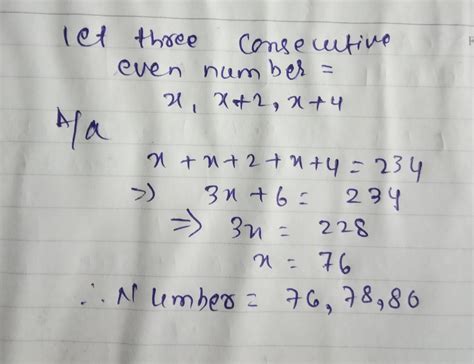 let three consecutive
even number =
x, x+2, x+4
A/q
x + x + 2 + x + 4 = 234
=> 3x + 6 = 234
=> 3x = 228
x = 76
∴ Number = 76, 78, 80